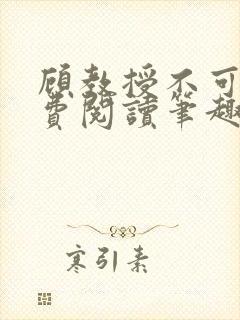 顾教授不可
费阅读笔趣
寒引素